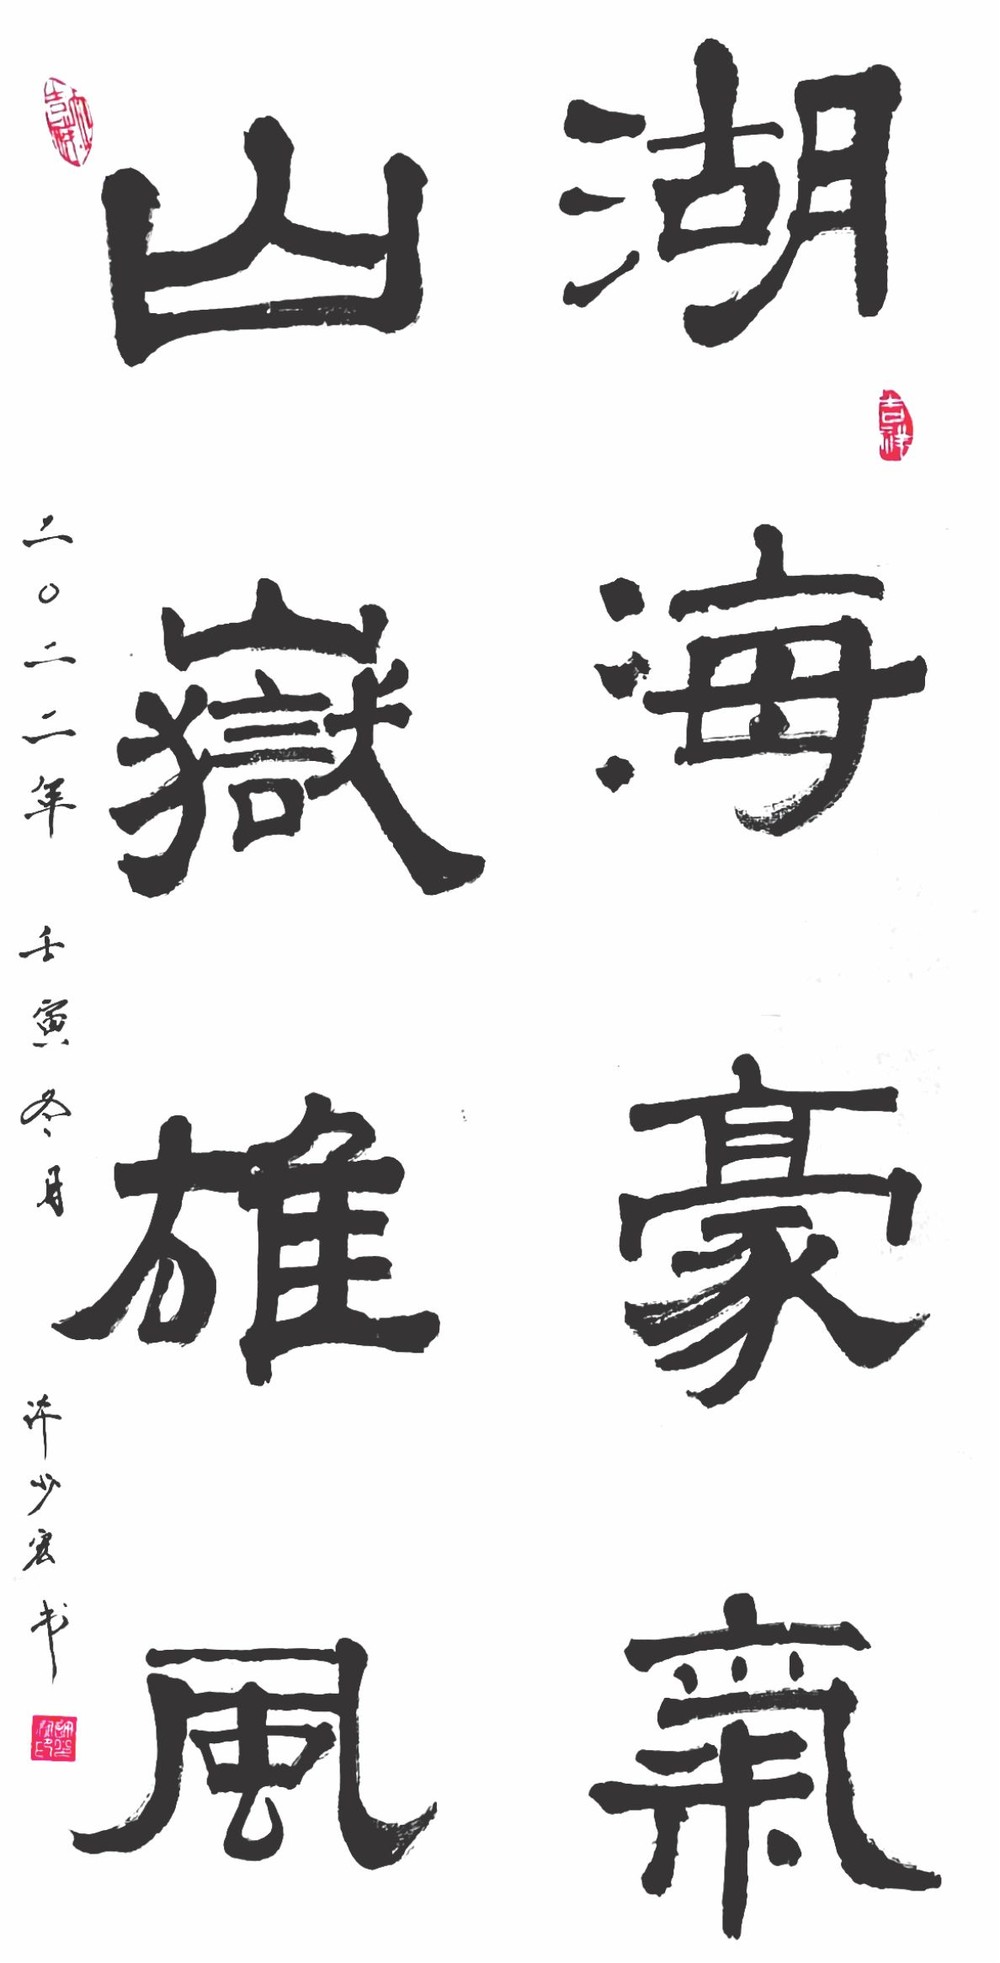 湖海豪氣
山嶽雄風
二〇二二年 壬寅冬月 许少宏书
吉祥